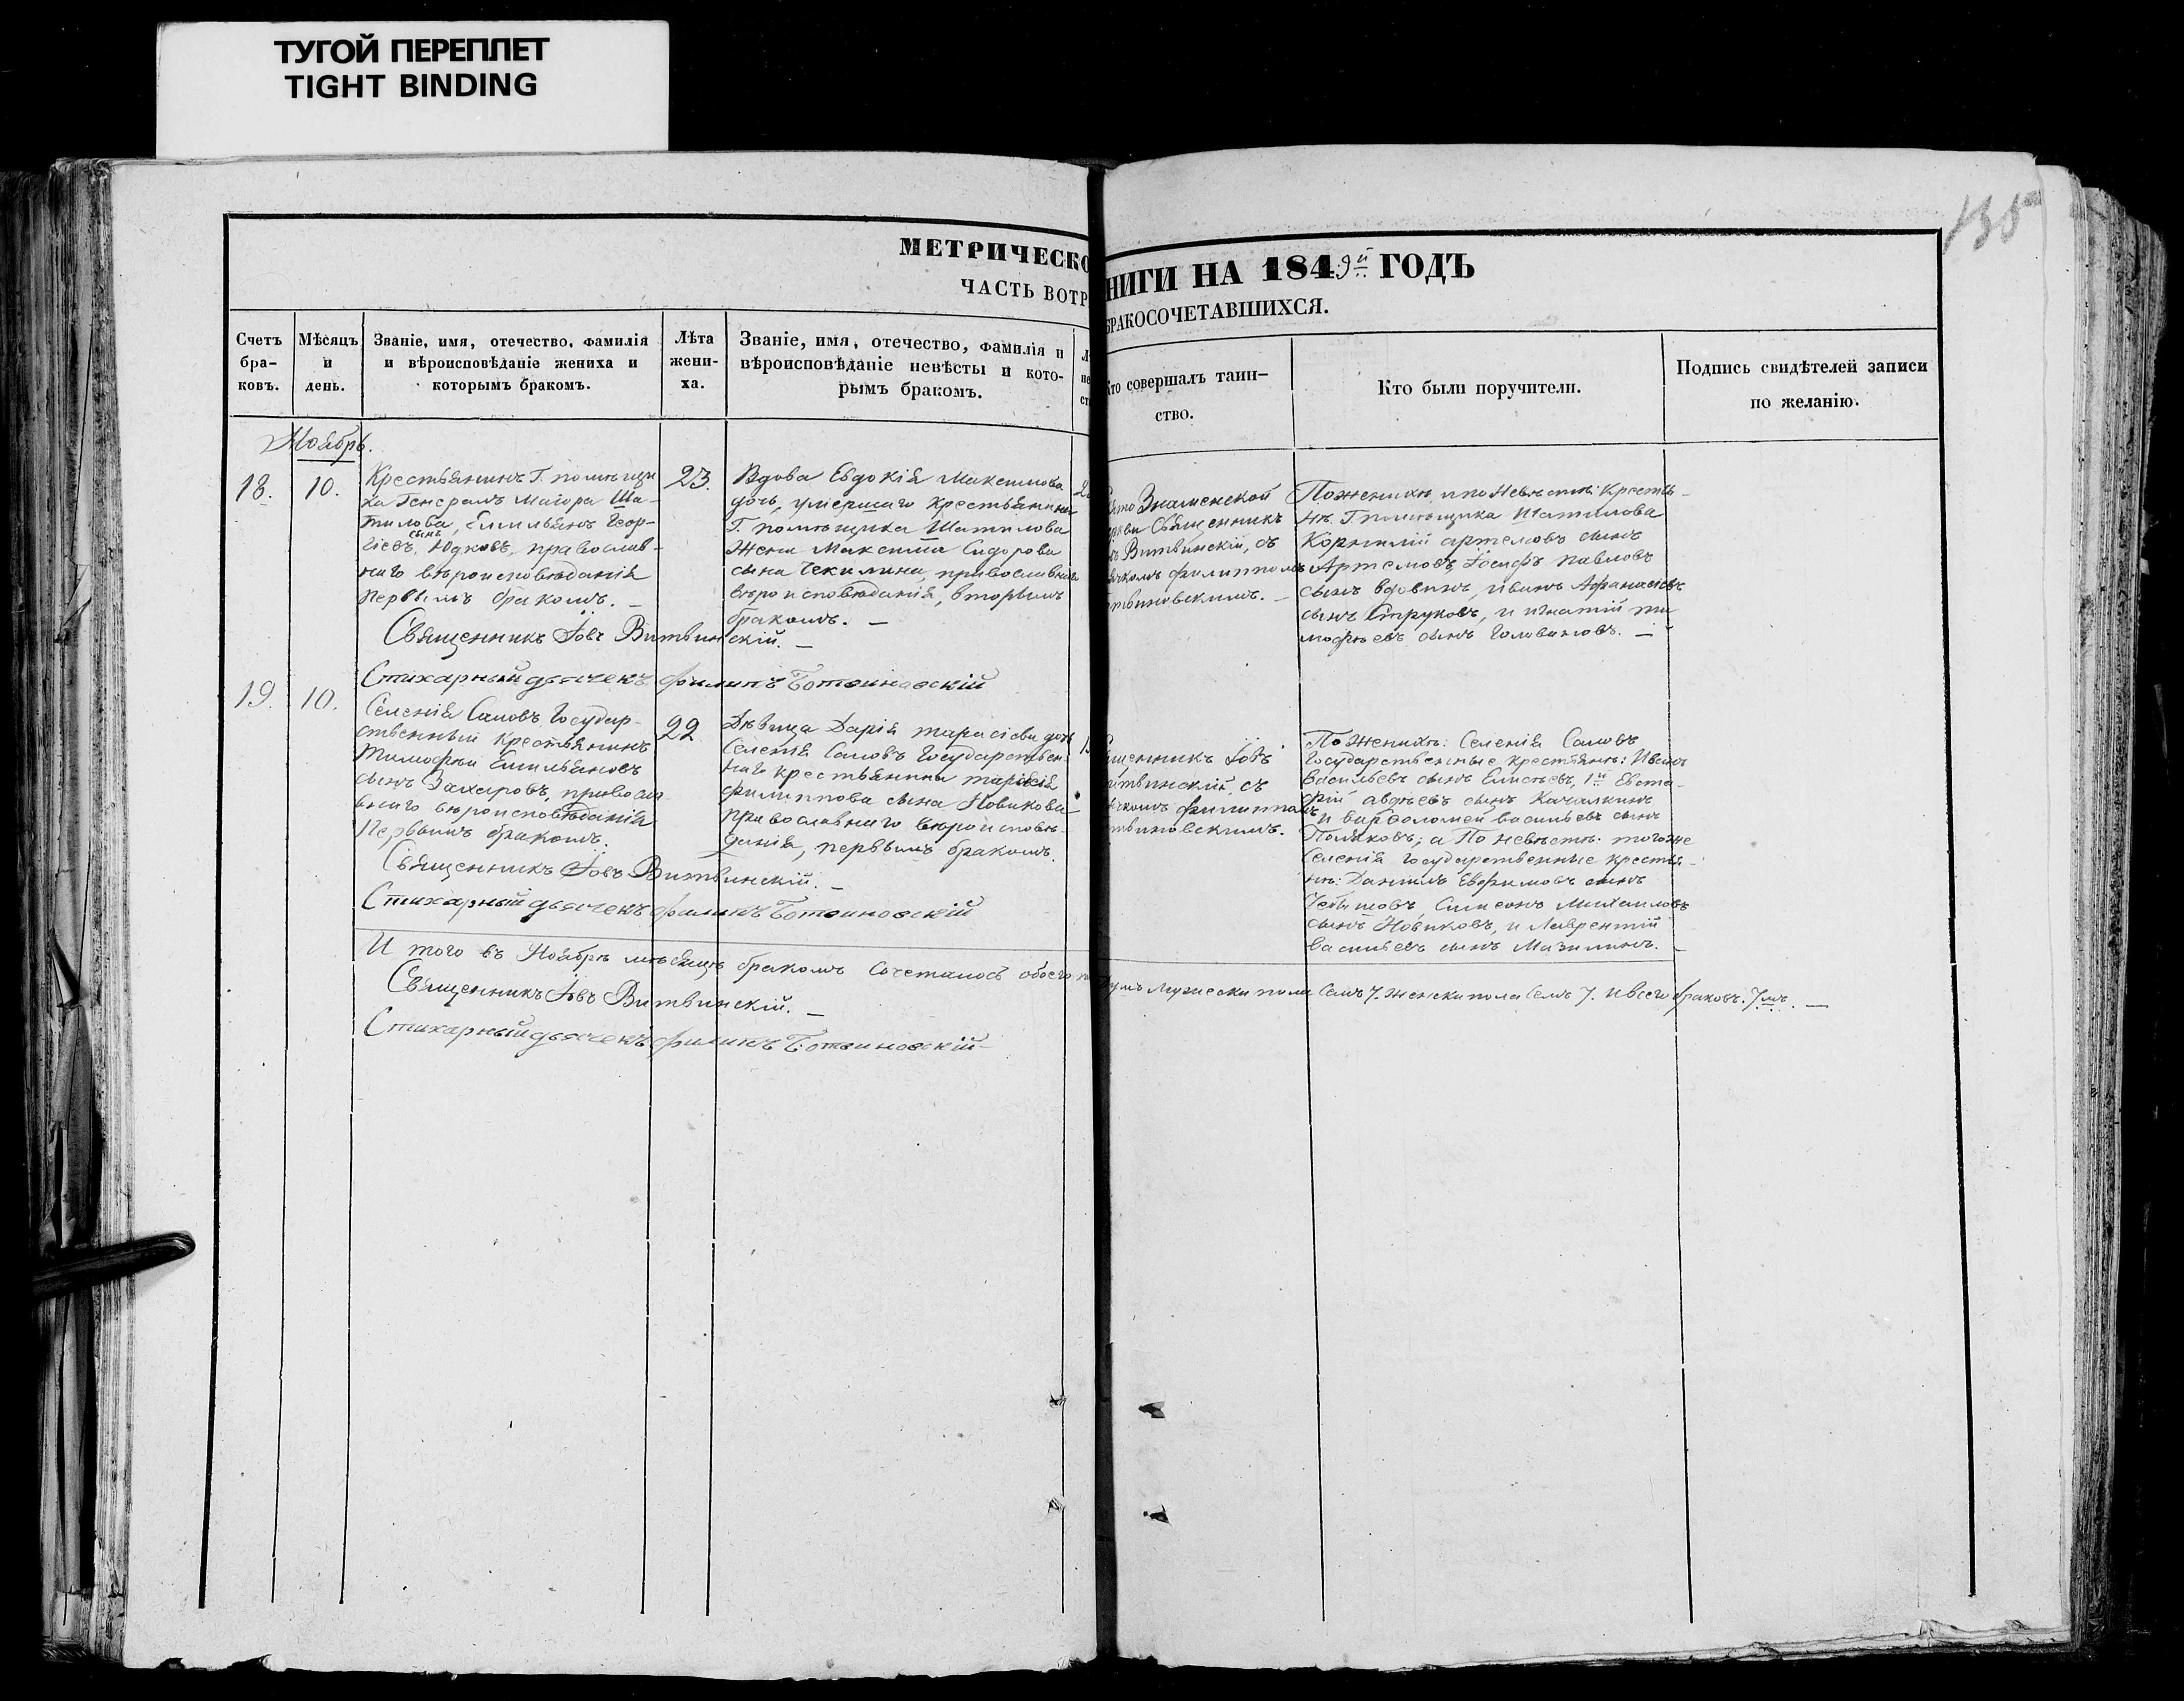 ТУГОЙ ПЕРЕПЛЕТ
TIGHT BINDING
135
МЕТРИЧЕСКО
НИГИ НА 1849й ГОДЪ
ЧАСТЬ ВОТР
БРАКОСОЧЕТАВШИХСЯ.
Счетъ
бра-
ковъ.
Мѣсяцъ
и
день.
Званіе, имя, отечество, фамилія
и вѣроисповѣданіе жениха и
которымъ бракомъ.
Лѣта
жени-
ха.
Званіе, имя, отечество, фамилія и
вѣроисповѣданіе невѣсты и кото-
рымъ бракомъ.
Кто совершалъ таин-
ство.
Кто были поручители.
Подпись свидѣтелей записи
по желанію.
Ноябрь.
18.
10.
Крестьянинъ Г. помѣщи
ка Генералъ Маіора Ша-
тилова, Емильянъ Геор-
гіевъ сынъ Юдковъ, православ-
наго вѣроисповѣданія
первымъ бракомъ. —
23.
Вдова Евдокія Максимова
дочь, умершаго крестьянина
Г. помѣщика Шатилова
жена Максима Сидорова
сына Чекилина, православнаго
вѣроисповѣданія, вторымъ
бракомъ. —
Знаменской
Священникъ
Витвинскій, съ
филиппомъ
твиновскимъ. —
По женихѣ и по невѣстѣ: крестья-
нѣ Г. помѣщика Шатилова
Корнилій артемовъ сынъ
Артемовъ, Іосифъ павловъ
сынъ вдовинъ, иванъ Афанасіевъ
сынъ Струковъ, и игнатій ти
мофѣевъ сынъ Головиновъ. —
Священникъ Іовъ Витвинскій. —
Стихарный дьячекъ филипъ Ботвиновскій
19.
10.
Селенія Саловъ Государ-
ственный крестьянинъ
Тимофѣй Емильяновъ
сынъ Захаровъ, православ
внаго вѣроисповѣданія
первымъ бракомъ.
22
Дѣвица Дарія тарасіева дочь
Селенія Саловъ Государствен-
наго крестьянина тарасія
филиппова сына Новикова
православнаго вѣроисповѣ-
данія, первымъ бракомъ.
щенникъ Іовъ
итвинскій, съ
ячкомъ филиппомъ
твиновскимъ.
По женихѣ: Селенія Саловъ
Государственные крестьянѣ: Иванъ
васильевъ сынъ Елисѣевъ, Евста-
фій авдѣевъ сынъ Качалкинъ
и варфоломей васильевъ сынъ
Поляковъ; а По невѣстѣ: того же
Селенія Государственные крестья-
нѣ: Даніилъ Евфимовъ сынъ
Симеонъ Михаиловъ
сынъ Новиковъ, и Лаврентій
васильевъ сынъ Мазилинъ. —
Священникъ Іовъ Витвинскій. —
Стихарный дьячекъ филипъ Ботвиновскій
И того въ Ноябрѣ мѣсяцѣ бракомъ сочеталось обоего
мужеска пола семь 7. женска пола семь 7. и всего браковъ. 7мь. —
Священникъ Іовъ Витвинскій. —
Стихарный дьячекъ филипъ Ботвиновскій